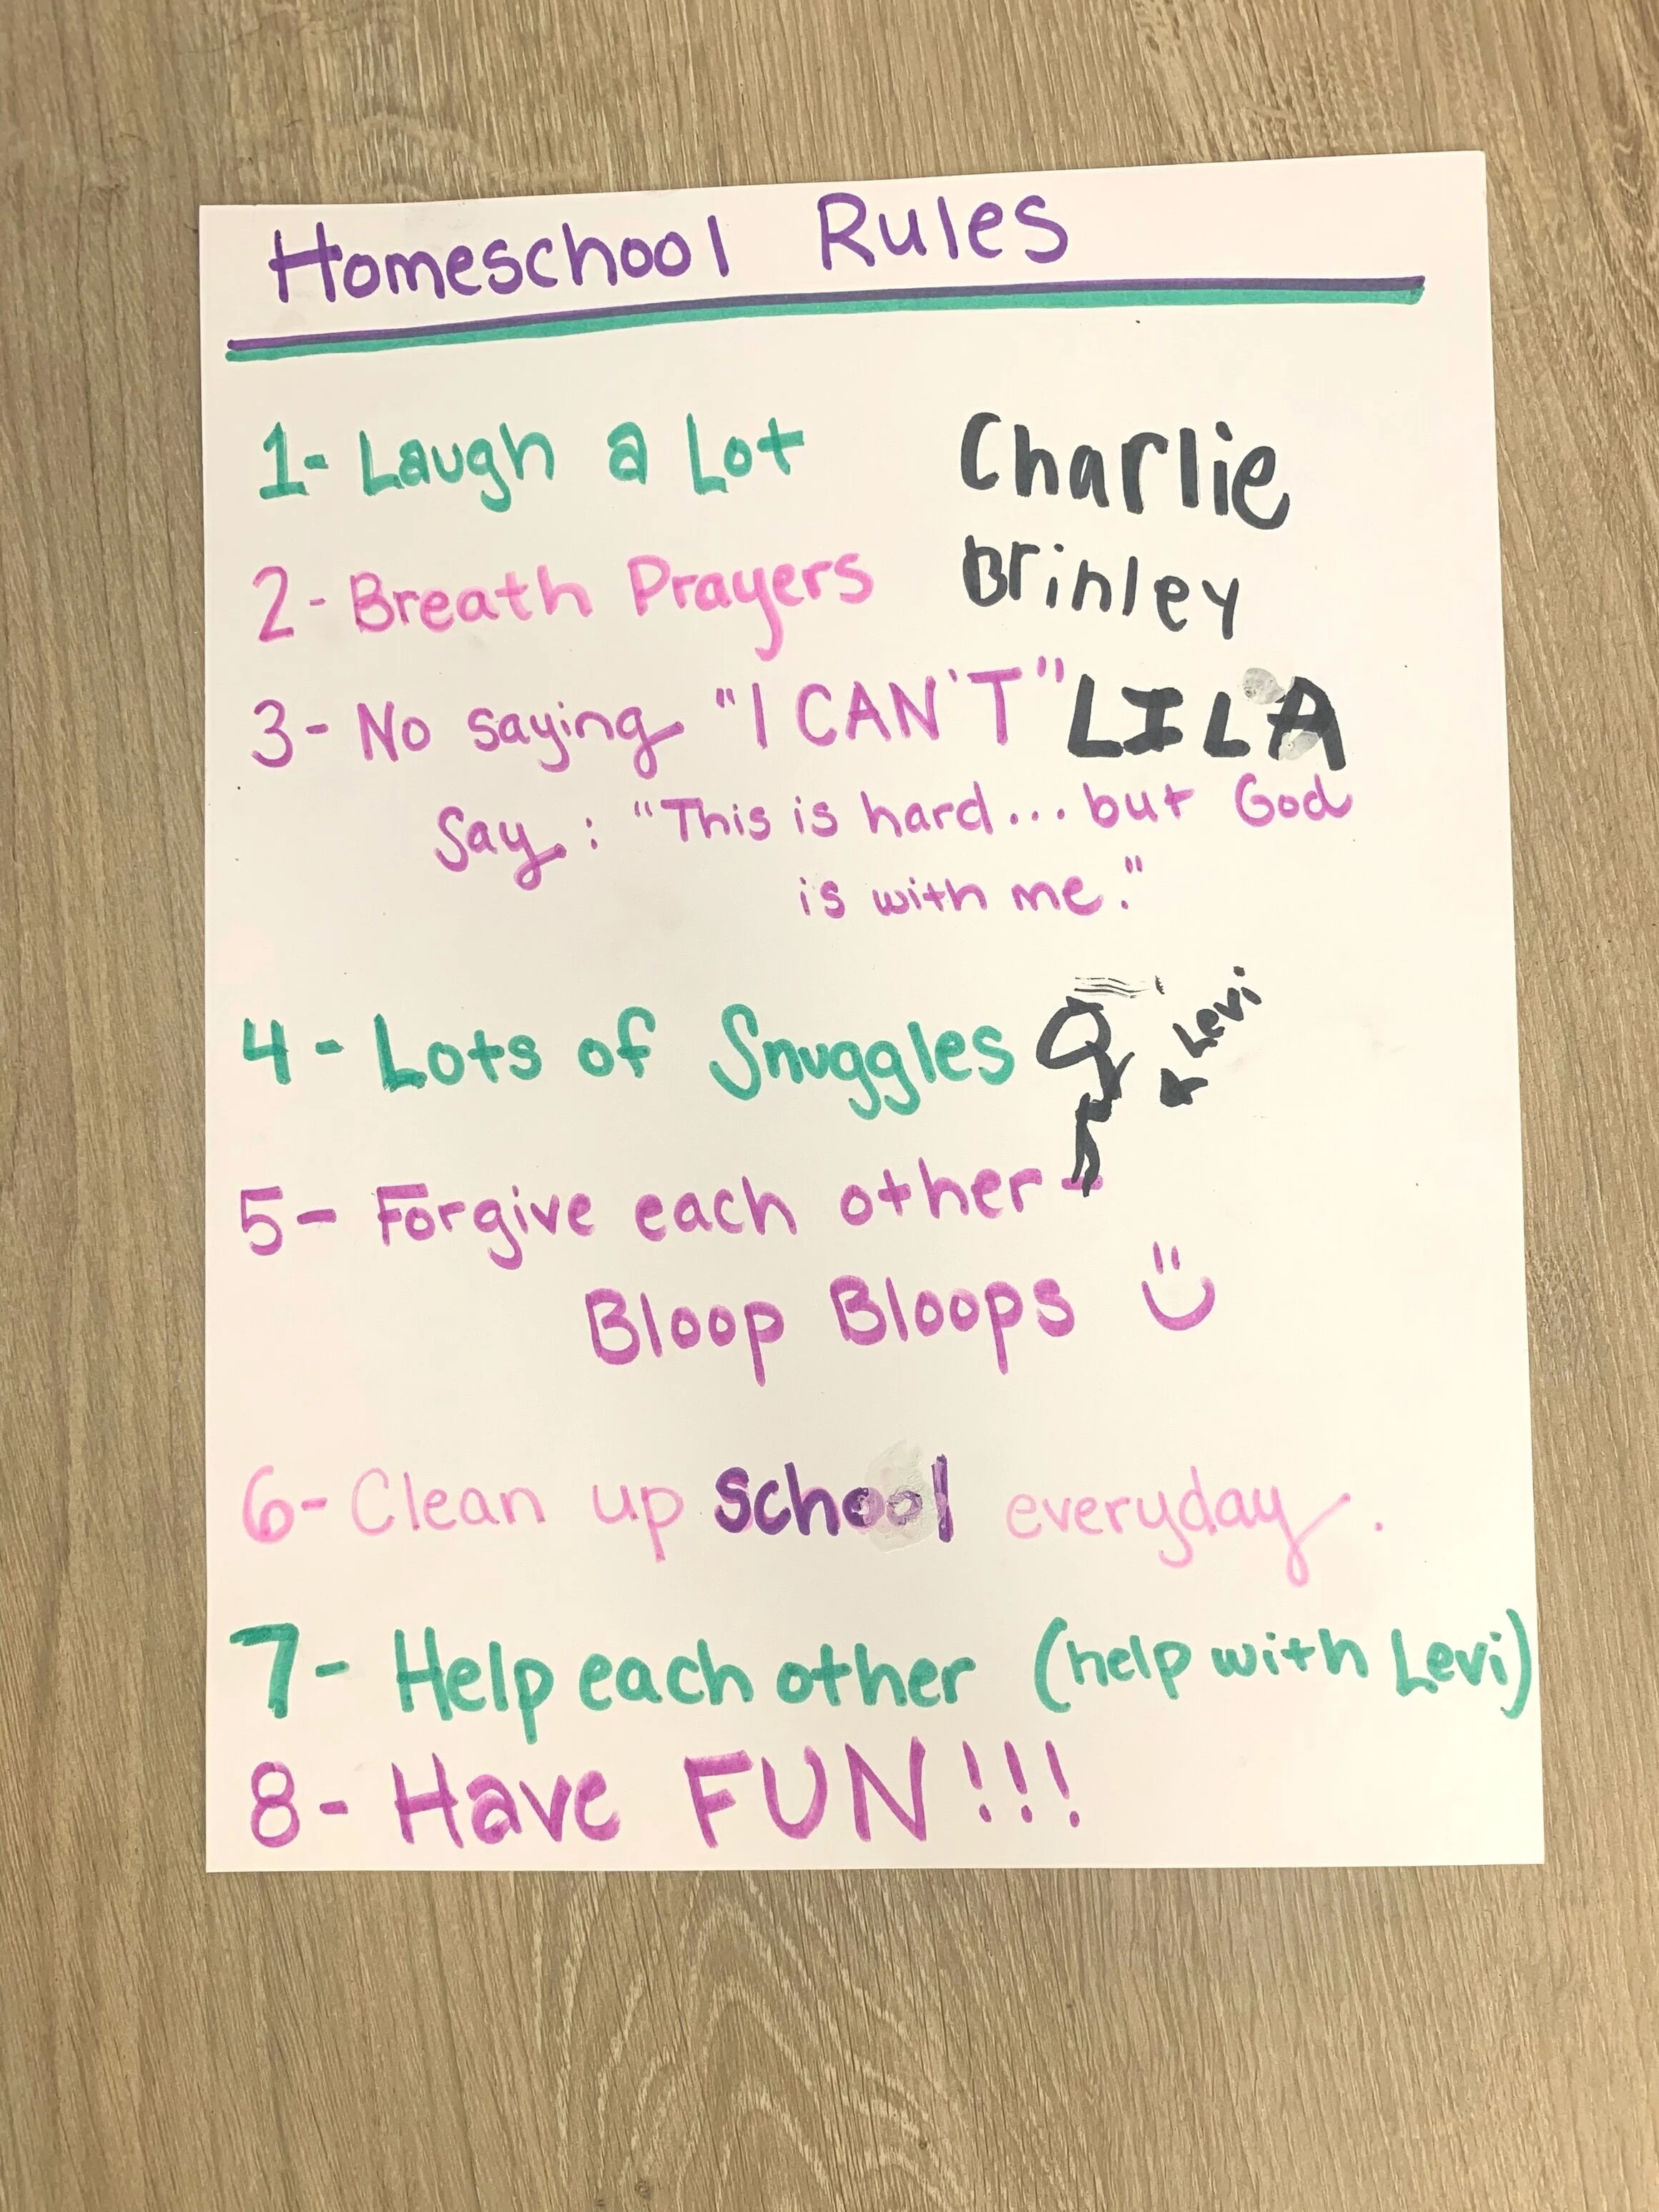 Homeschool Rules
1- Laugh a Lot Charlie
2- Breath Prayers Brinley
3- No saying "I CAN'T" LILA
Say: "This is hard... but God
is with me."
Levi
4- Lots of Snuggles
5- Forgive each other
Bloop Bloops
6- Clean up school everyday.
7- Help each other (help with Levi)
8- Have FUN!!!